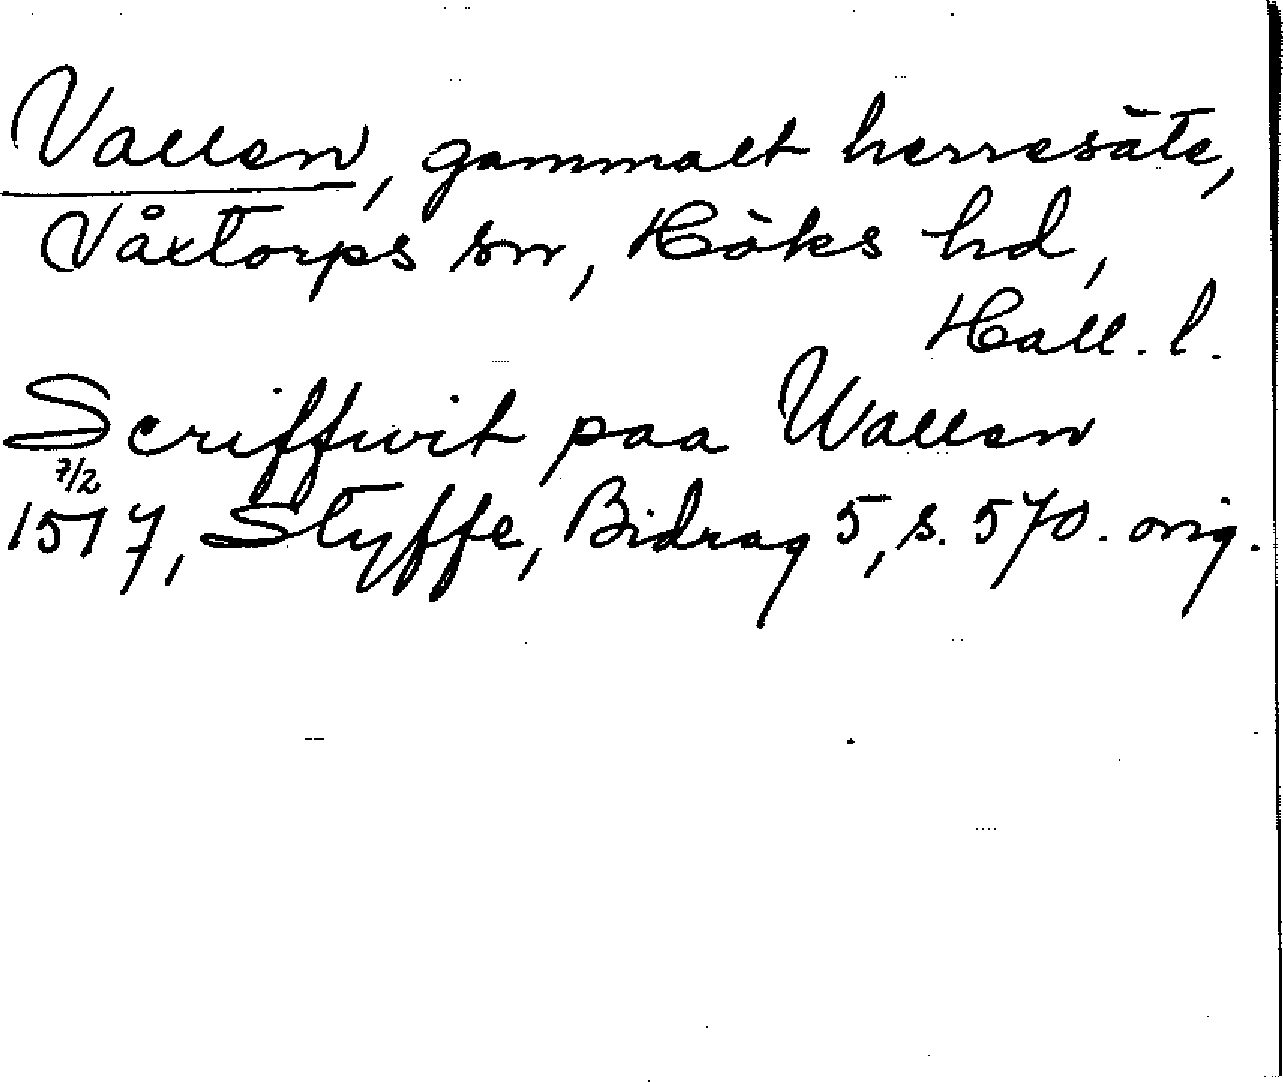 Vallen, gammalt herresäte,
Våxtorps sn, Höks hd,
Hall. l.
Scriffuit paa Wallen
7/2
1517, Styffe, Bidrag 5, s. 570. orig.